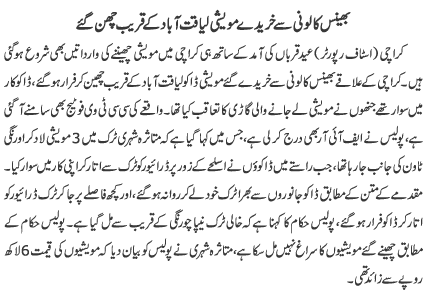 بھینس کالونی سے خریدے مویشی لیاقت آباد کے قریب چھن گئے
کراچی (اسٹاف رپورٹر) عید قرباں کی آمد کے ساتھ ہی کراچی میں مویشی چھیننے کی وارداتیں بھی شروع ہو گئی
ہیں۔ کراچی کے علاقے بھینس کالونی سے خریدے گئے مویشی ڈاکو لیاقت آباد کے قریب چھین کر فرار ہو گئے، ڈاکو کار
میں سوار تھے جنھوں نے مویشی لے جانے والی گاڑی کا تعاقب کیا تھا۔ واقعے کی سی سی ٹی وی فوٹیج بھی سامنے آگئی
ہے، پولیس نے ایف آئی آر بھی درج کر لی ہے، جس میں کہا گیا ہے کہ متاثرہ شہری ٹرک میں 3 مویشی لاد کر اورنگی
ٹاون کی جانب جا رہا تھا، جب راستے میں ڈاکوؤں نے اسلحے کے زور پر ڈرائیور کو ٹرک سے اتار کر اپنی کار میں سوار کیا۔
مقدمے کے متن کے مطابق ڈاکو جانوروں سے بھرا ٹرک خود لے کر روانہ ہو گئے، اور کچھ فاصلے پر جا کر ٹرک ڈرائیور کو
اتار کر ڈاکو فرار ہو گئے، پولیس حکام کا کہنا ہے کہ خالی ٹرک نیپا چورنگی کے قریب سے مل گیا ہے۔ پولیس حکام کے
مطابق چھینے گئے مویشیوں کا سراغ نہیں مل سکا ہے، متاثرہ شہری نے پولیس کو بیان دیا کہ مویشیوں کی قیمت 6 لاکھ
روپے سے زائد تھی۔